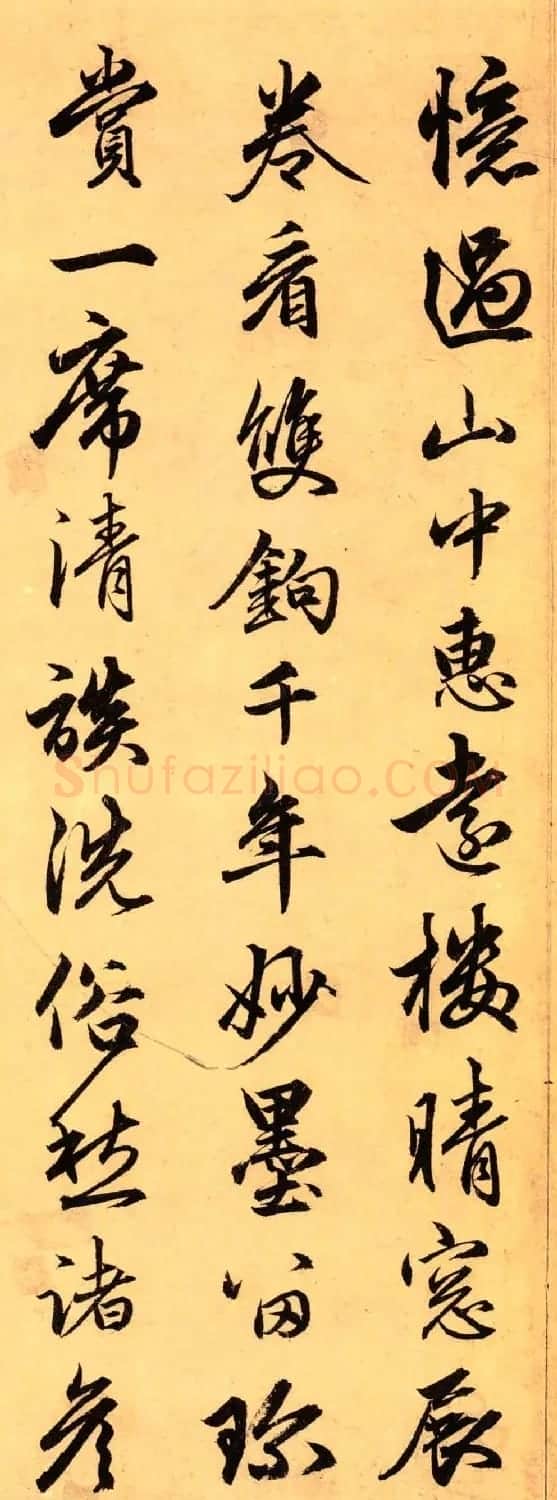 憶過山中惠遠樓晴窓展
卷看雙鉤千年妙墨留珍
賞一席清談洗俗愁諸彥
Shufaziliao.COM